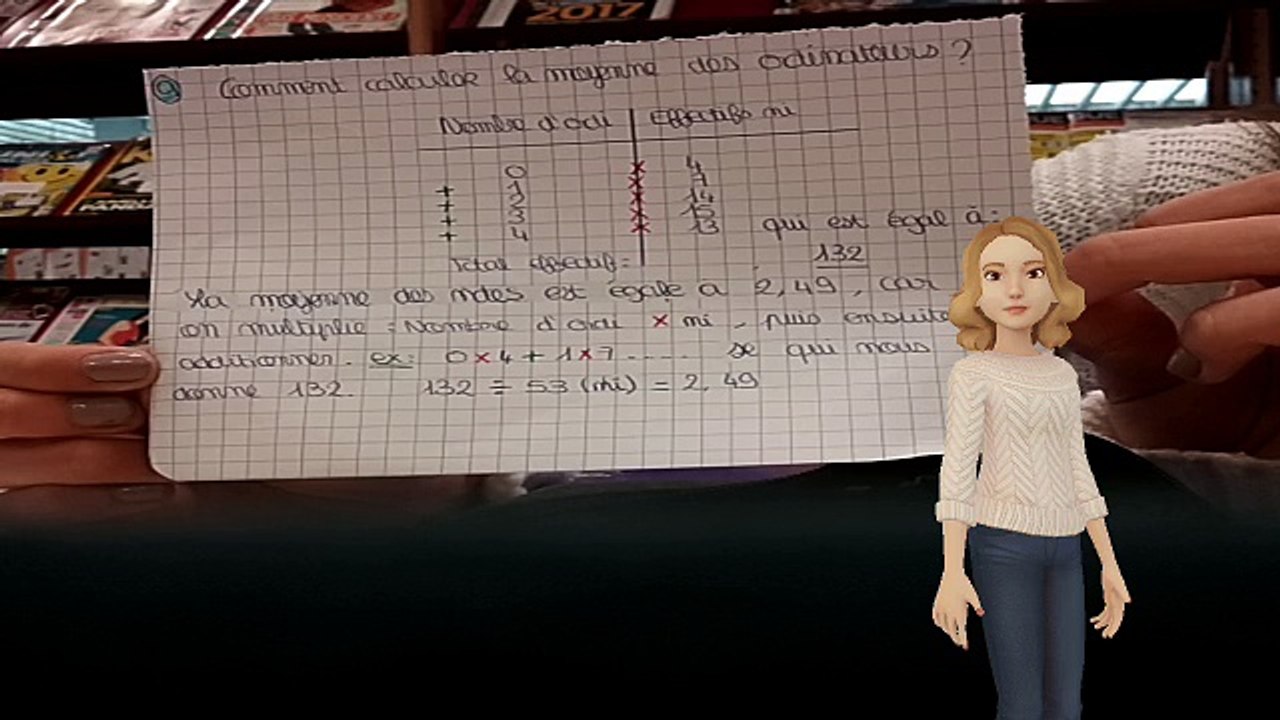 2017
9 Comment calculer la moyenne des odinateurs ?
Nombre d'odi Effectifs ni
0 × 4
+ 1 × 7
+ 2 × 14
+ 3 × 15
+ 4 × 13 qui est égal à :
Total effectif = 132
La moyenne des notes est égale a 2,49, car
on multiplie : Nombre d'odi × ni, puis ensuite
additionner. ex: 0 × 4 + 1 × 7 ..... se qui nous
donne 132. 132 ÷ 53 (ni) = 2,49